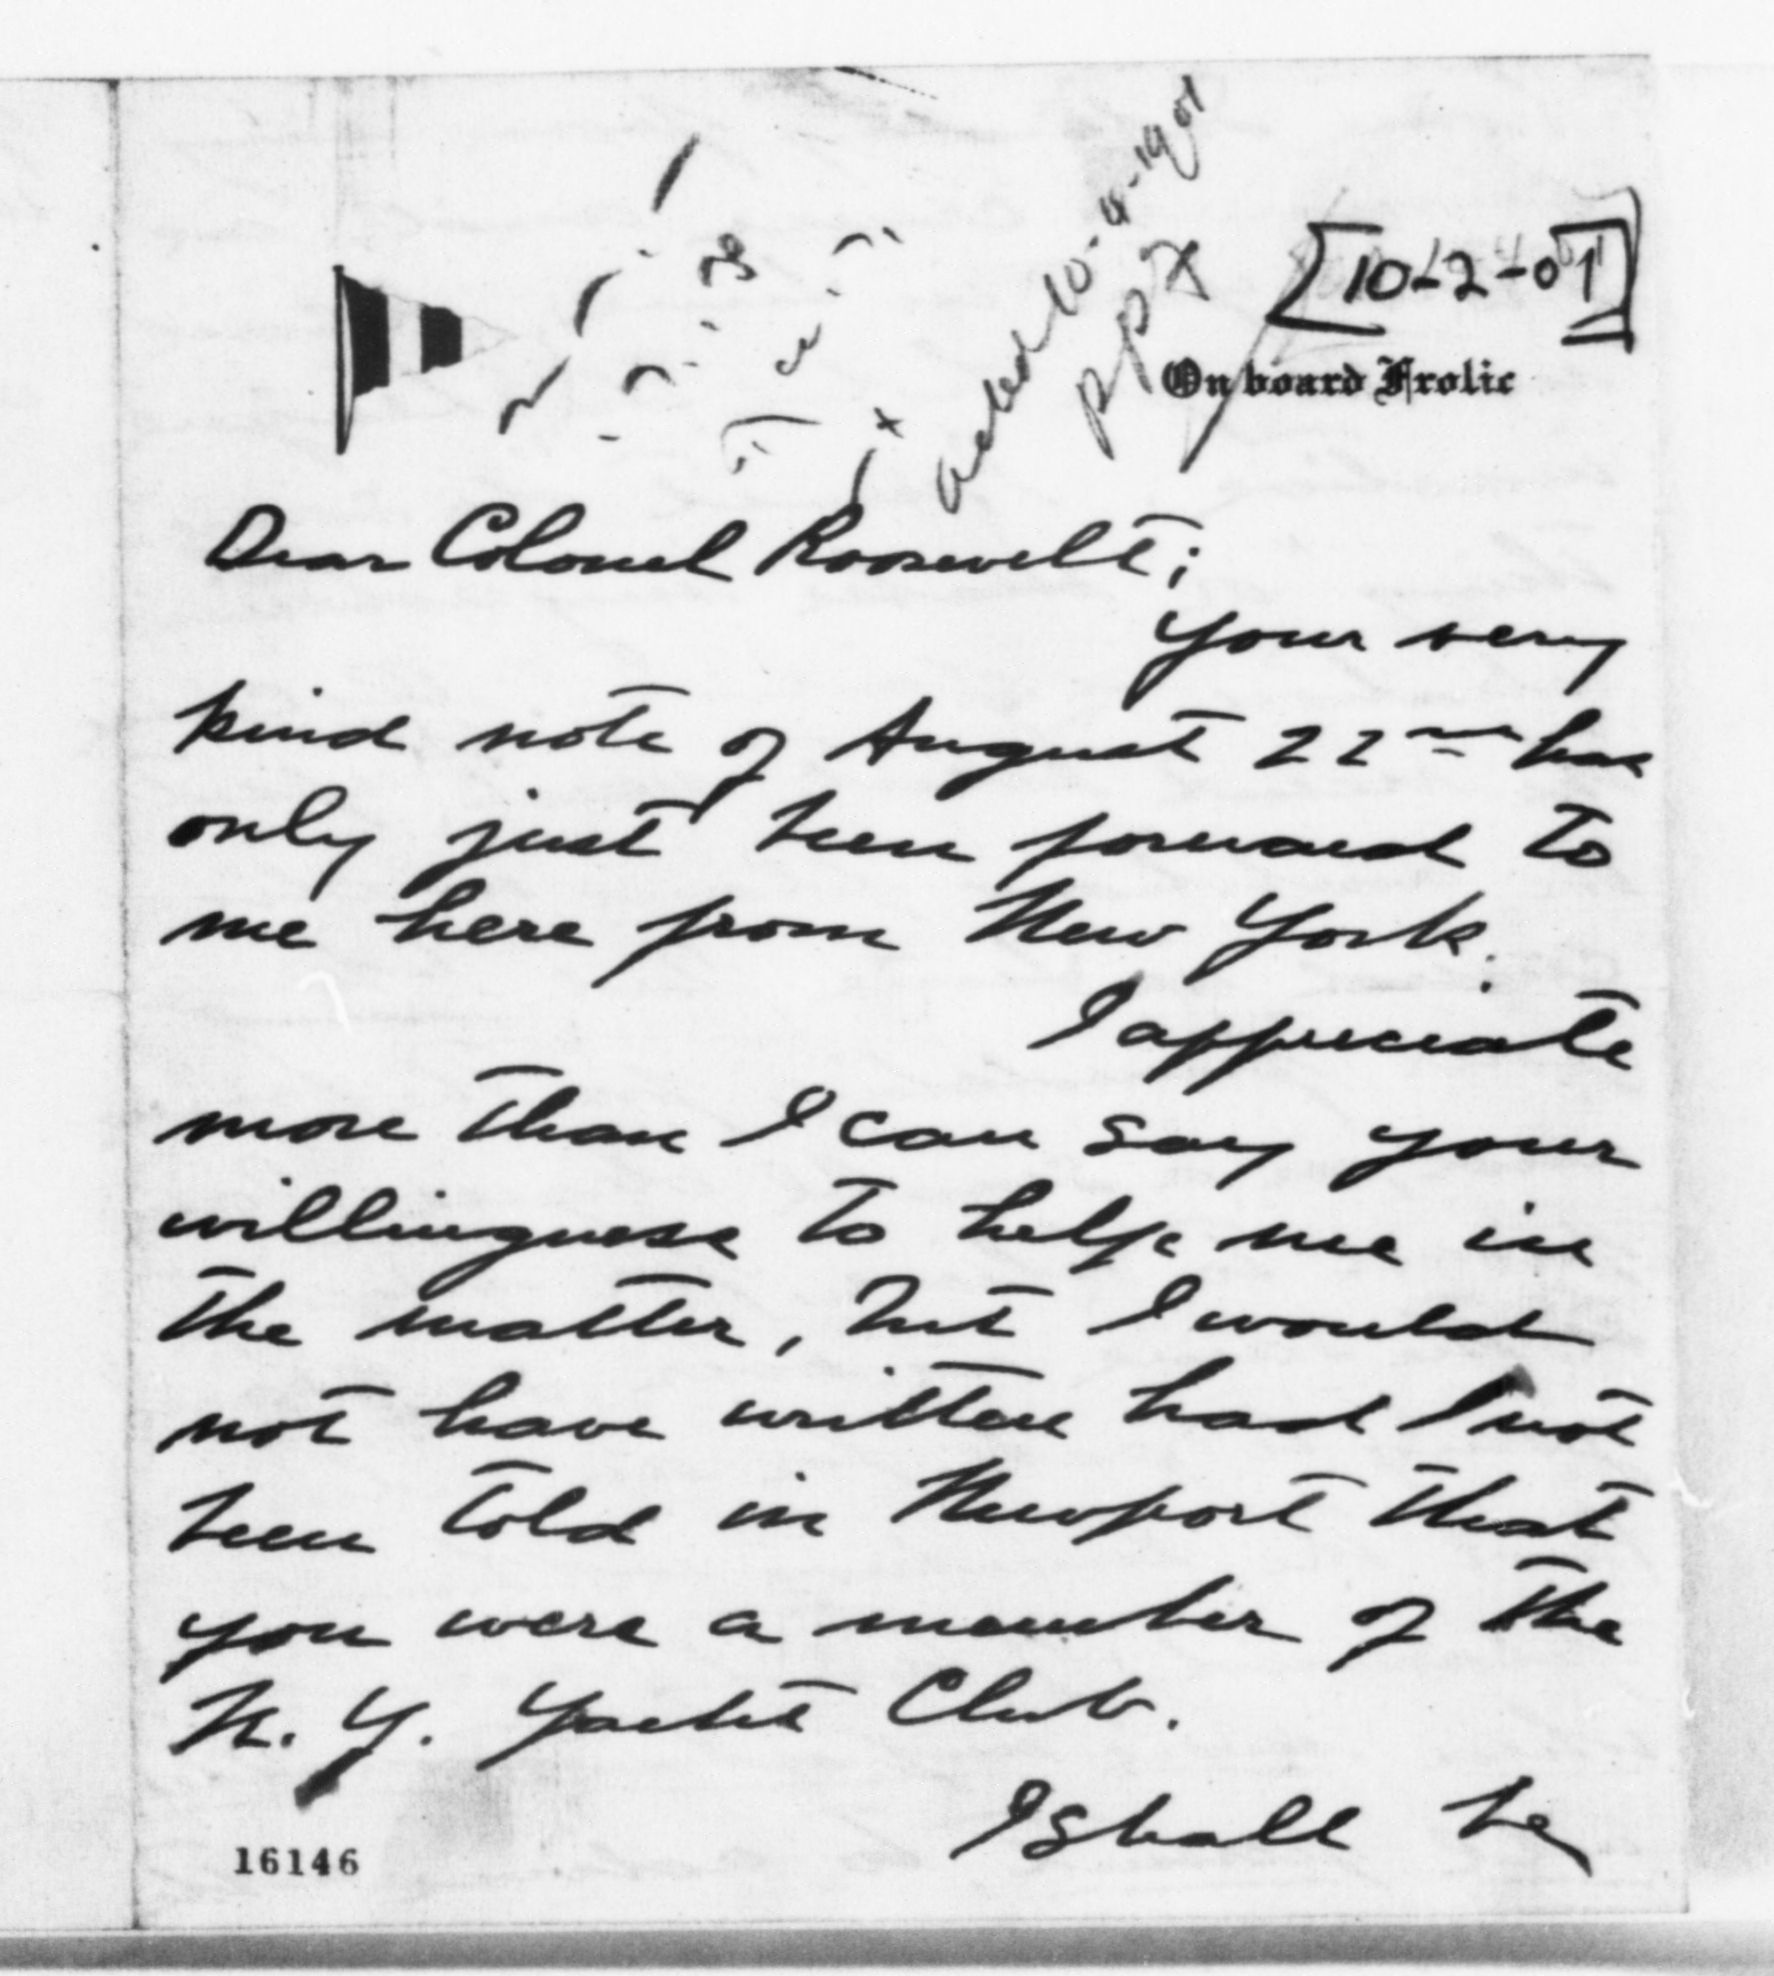 acked 10-4-1901
PPF
[10-2-01]
On board Frolic
Dear Colonel Roosevelt;
Your very
kind note of August 22nd has
only just been forward to
me here from New York.
I appreciate
more than I can say your
willingness to help me in
the matter, but I would
not have written had I not
been told in Newport that
you were a member of the
N. Y. Yacht Club.
I shall be
16146